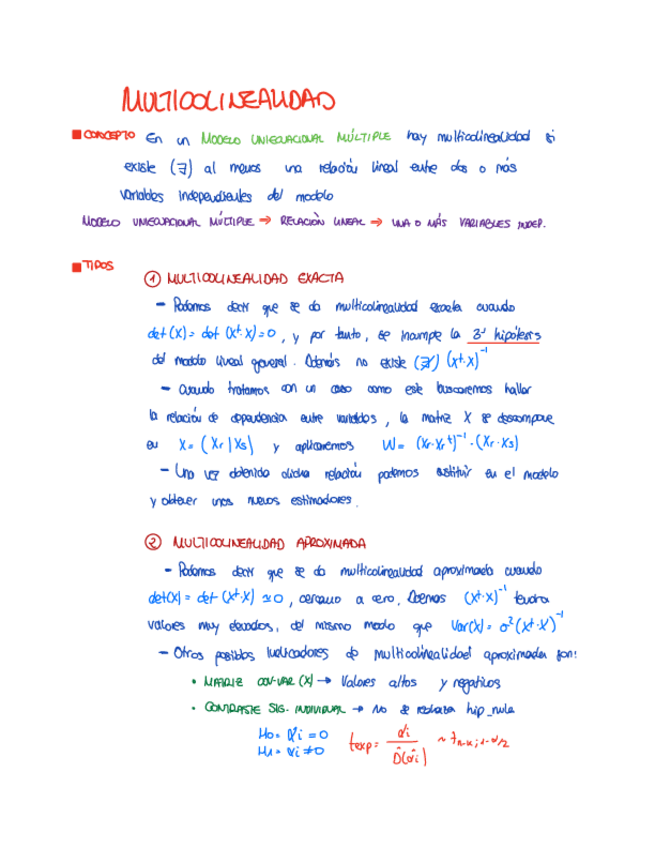 MULTICOLINEALIDAD
CONCEPTO En un MODELO UNIECUACIONAL MÚLTIPLE hay multicolinealidad si
existe (∃) al menos una relación lineal entre dos o más
variables independientes del modelo
MODELO UNIECUACIONAL MÚLTIPLE → RELACIÓN LINEAL → UNA O MÁS VARIABLES INDEP.
TIPOS
① MULTICOLINEALIDAD EXACTA
- Podemos decir que se da multicolinealidad exacta cuando
det(X) = det (Xᵗ·X) = 0, y por tanto, se incumple la 3ª hipótesis
del modelo lineal general. Además no existe (∄) (Xᵗ·X)⁻¹
- Cuando tratamos con un caso como este buscaremos hallar
la relación de dependencia entre variables, la matriz X se descompone
en X = (Xr | Xs) y aplicaremos W = (Xr·Xrᵗ)⁻¹·(Xr·Xs)
- Una vez obtenida dicha relación podemos sustituir en el modelo
y obtener unos nuevos estimadores.
② MULTICOLINEALIDAD APROXIMADA
- Podemos decir que se da multicolinealidad aproximada cuando
det(X) = det (Xᵗ·X) ≃ 0, cercano a cero. Además (Xᵗ·X)⁻¹ tendrá
valores muy elevados, del mismo modo que Var(X) = σ²(Xᵗ·X)⁻¹
- Otros posibles indicadores de multicolinealidad aproximada son:
• MATRIZ COV-VAR (X) → Valores altos y negativos
• CONTRASTE SIG. INDIVIDUAL → No se rechaza hip_nula
H₀ = αi = 0
H₁ = αi ≠ 0
texp = α̂i / D̂(α̂i) ~ t n-k; 1-α/2